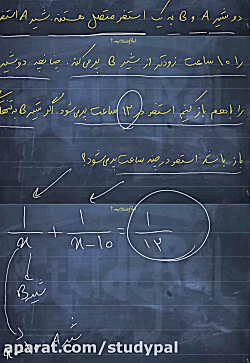 دو شیر A و B به یک استخر متصل هستند. شیر A استخر
را ۱۰ ساعت زودتر از شیر B پر می‌کند. چنانچه دو شیر
را با هم باز کنیم استخر در ۱۲ ساعت پر می‌شود. اگر شیر B به تنهایی
باز باشد استخر در چند ساعت پر می‌شود؟
1/x + 1/x-10 = 1/12
شیر B
شیر A
aparat.com/studypal